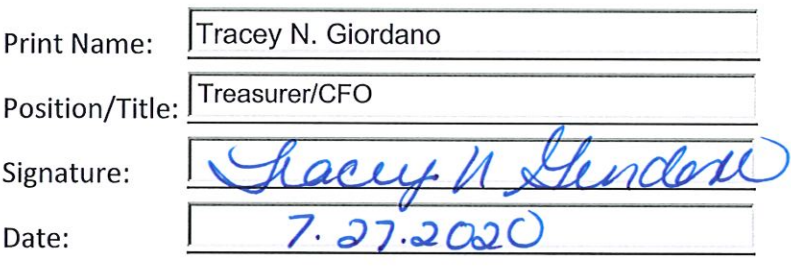 Print Name: Tracey N. Giordano
Position/Title: Treasurer/CFO
Signature: Tracey N Giordano
Date: 7.27.2020